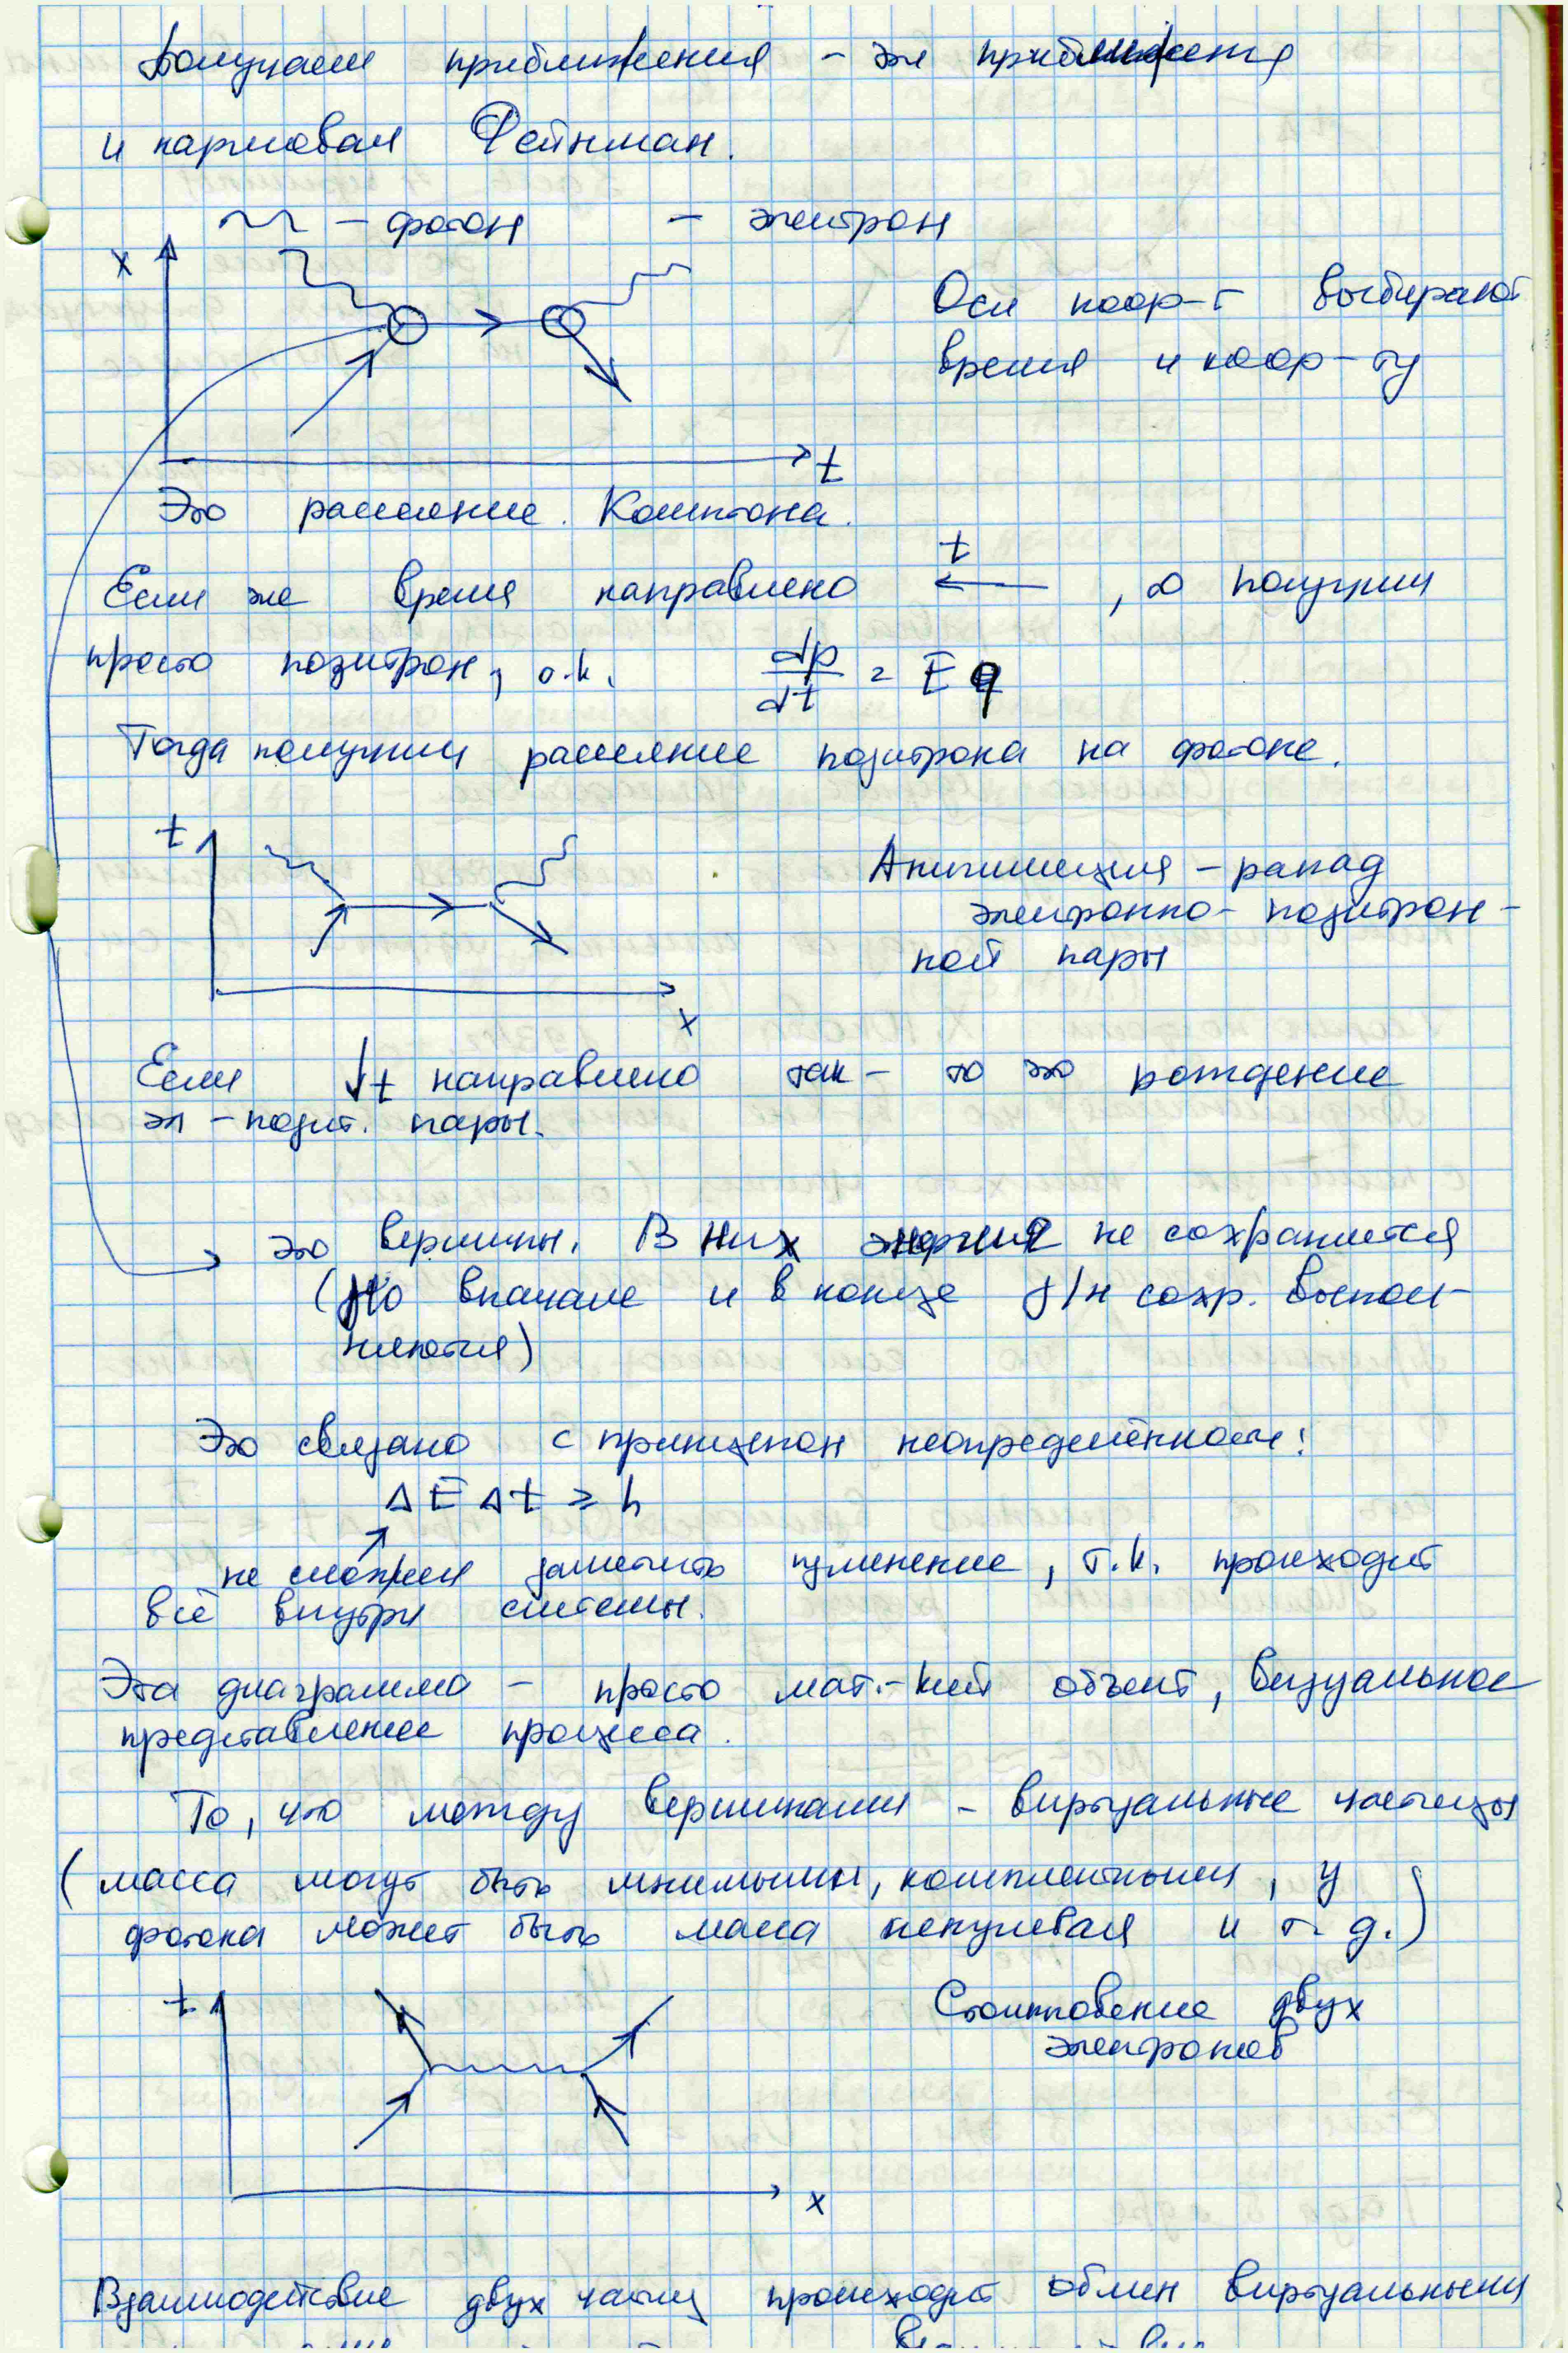 Получаем приближения – эти приближения
и нарисовал Фейнман.
– фотон – электрон
x
Оси коор-т выбирают
время и коор-ту
t
Это рассеяние Комптона.
t
Если же время направлено , то получим
просто позитрон, т.к. dp/dt = Eq
Тогда получим рассеяние позитрона на фотоне.
t
Аннигиляция – распад
электронно-позитрон-
ной пары
x
Если ↓t направлено так – то это рождение
эл-позит. пары.
это вершины. В них энергия не сохраняется
(Но вначале и в конце з/н сохр. выпол-
няются)
Это связано с принципом неопределённости:
ΔEΔt ≥ h
не сможем заметить изменение, т.к. происходит
всё внутри системы.
Эта диаграмма – просто мат.-кий объект, визуальное
представление процесса.
То, что между вершинами – виртуальные частицы
(масса могут быть мнимыми, комплексными, у
фотона может быть масса ненулевая и т.д.)
t
Столкновение двух
электронов
x
Взаимодействие двух частиц происходит обмен виртуальными